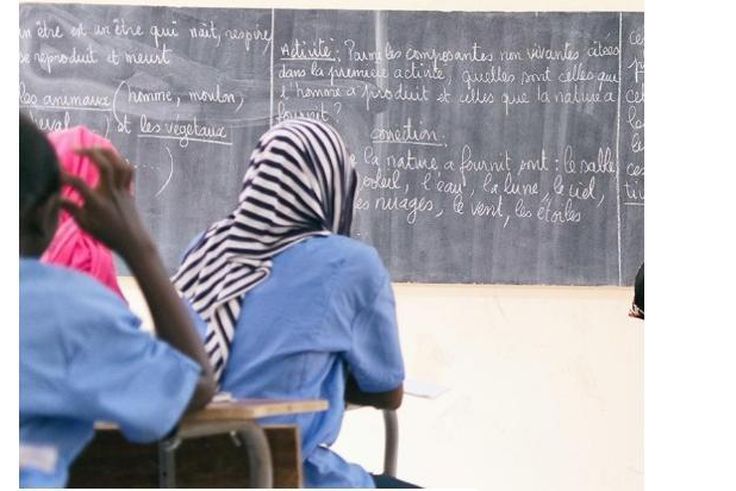 n être est un être qui naît, respire
se reproduit et meurt
les animaux (homme, mouton,
cheval ) et les végétaux
.....)
Activité : Parmi les composantes non vivantes citées
dans la première activité, quelles sont celles que
l'homme a produit et celles que la nature a
fournit ?
correction
la nature a fournit sont : le sable
soleil, l'eau, la lune, le ciel,
les nuages, le vent, les étoiles